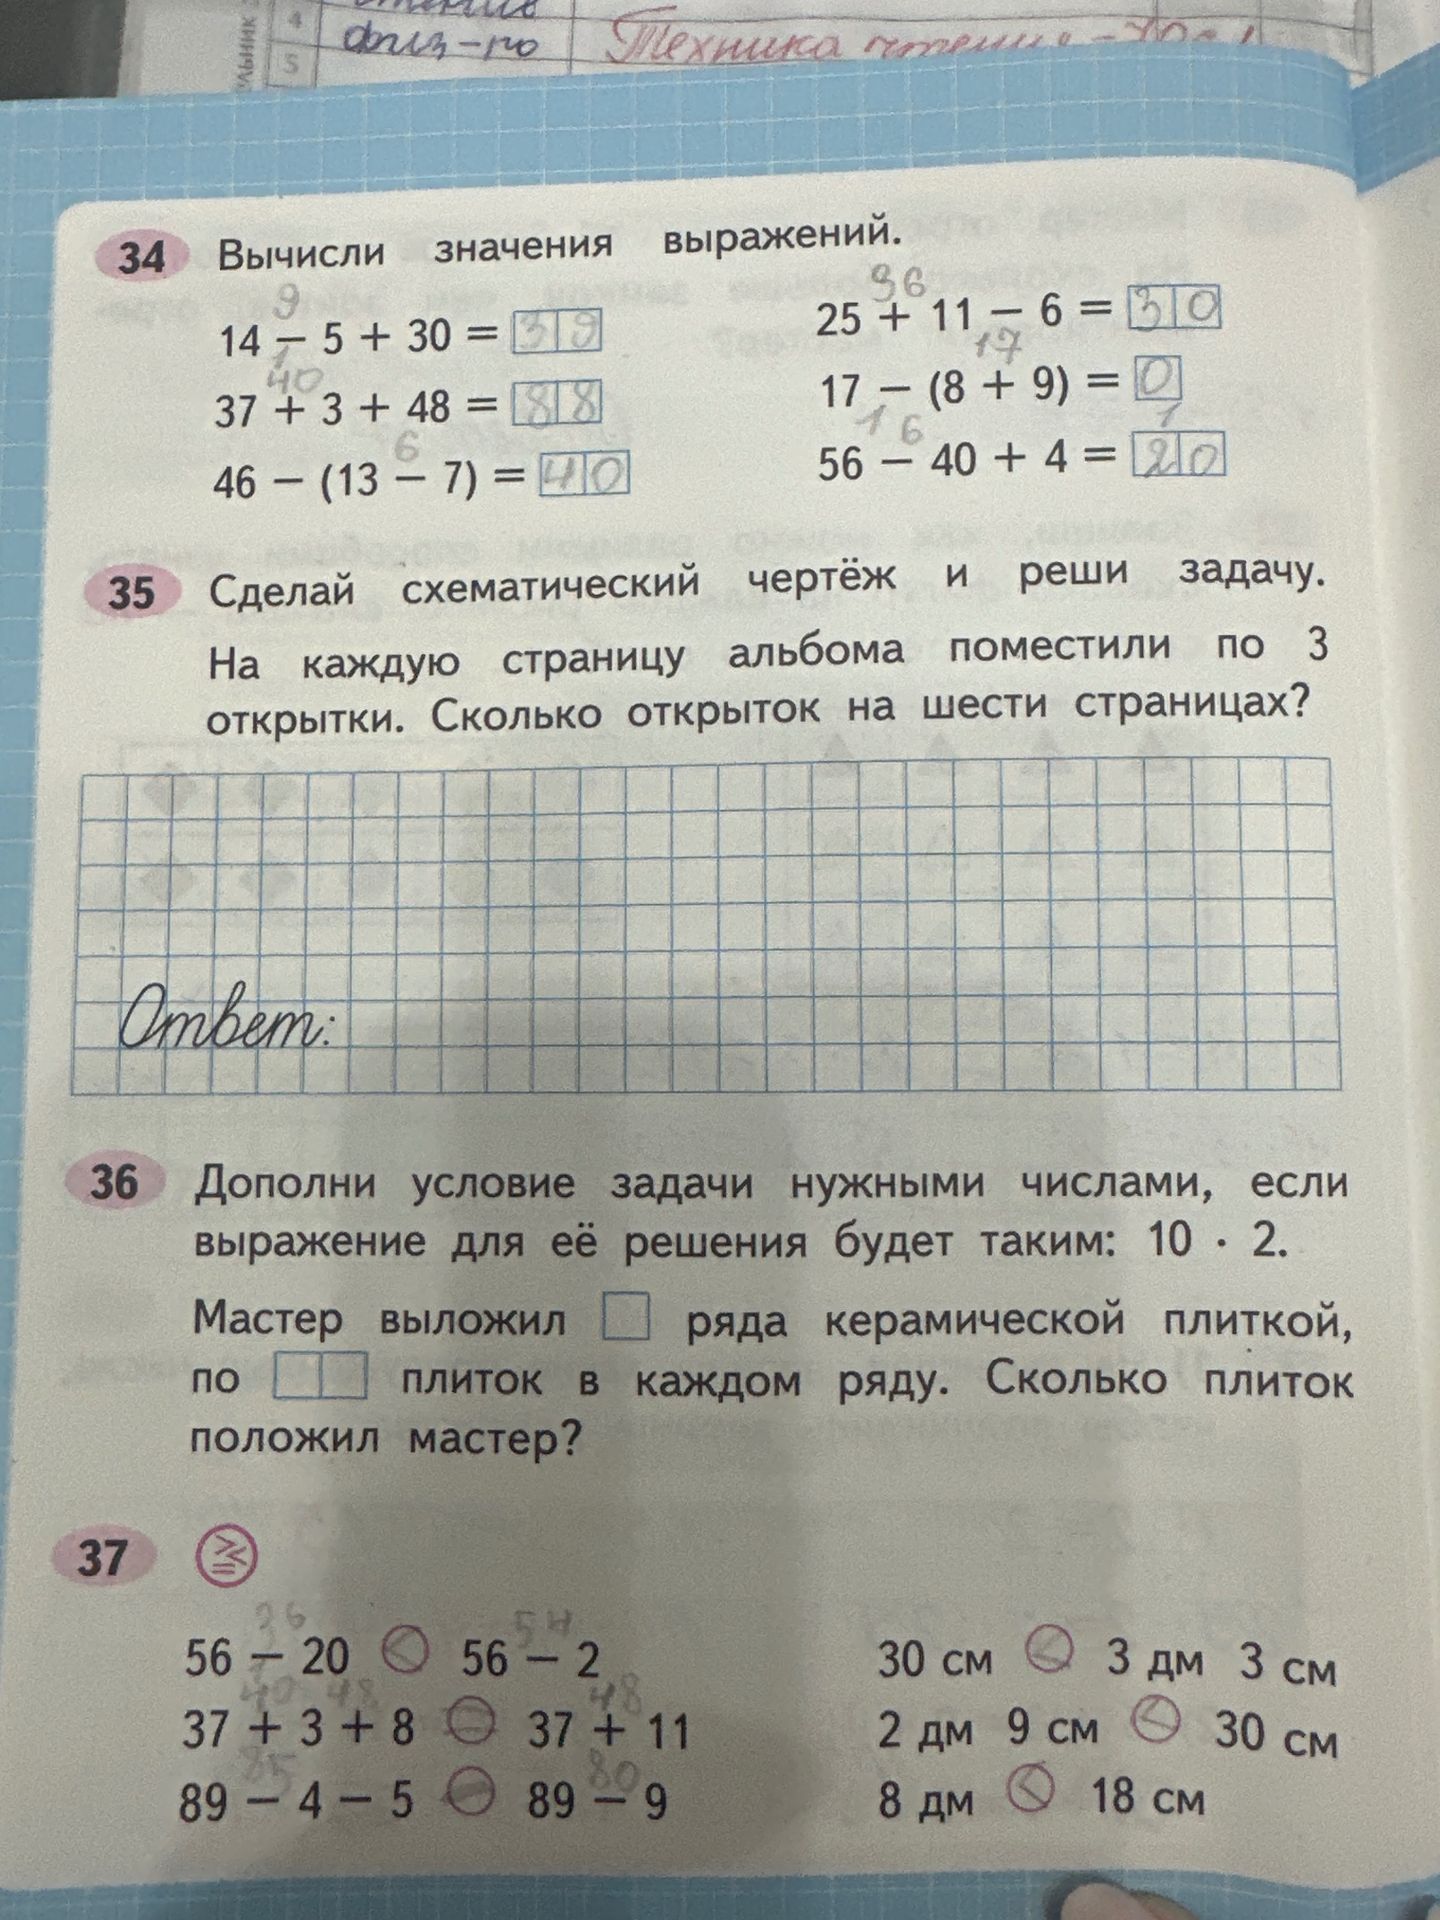 4
5
физ-ра Техника чтения -
34 Вычисли значения выражений.
9
14 – 5 + 30 = 39
36
25 + 11 – 6 = 30
1
40
37 + 3 + 48 = 88
17
17 – (8 + 9) = 0
6
46 – (13 – 7) = 40
1 6 1
56 – 40 + 4 = 20
35 Сделай схематический чертёж и реши задачу.
На каждую страницу альбома поместили по 3
открытки. Сколько открыток на шести страницах?
Ответ:
36 Дополни условие задачи нужными числами, если
выражение для её решения будет таким: 10 · 2.
Мастер выложил ряда керамической плиткой,
по плиток в каждом ряду. Сколько плиток
положил мастер?
37 > < =
36 54
56 – 20 < 56 – 2
40 48 48
37 + 3 + 8 = 37 + 11
85 80
89 – 4 – 5 = 89 – 9
30 см < 3 дм 3 см
2 дм 9 см < 30 см
8 дм < 18 см